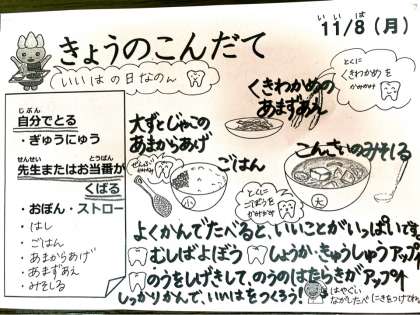 きょうのこんだて
11/8(月)
いいは
いいはの日なのん
とくに
くきわかめを
かみかみ
くきわかめの
あまずあえ
自分でとる
じぶん
・ぎゅうにゅう
先生またはお当番が
せんせい
とうばん
くばる
・おぼん・ストロー
・はし
・ごはん
・あまからあげ
・あまずあえ
・みそしる
大ずとじゃこの
あまからあげ
ぜんぶ
かみかみ
ごはん
小
とくに
ごぼうを
かみかみ
こんさいのみそしる
大
よくかんでたべると、いいことがいっぱいです。
むしばよぼう
しょうか・きゅうしゅうアップ
のうをしげきして、のうのはたらきがアップ
しっかりかんで、いいはをつくろう!
はやぐい
ながしたべ
にきをつけてね。